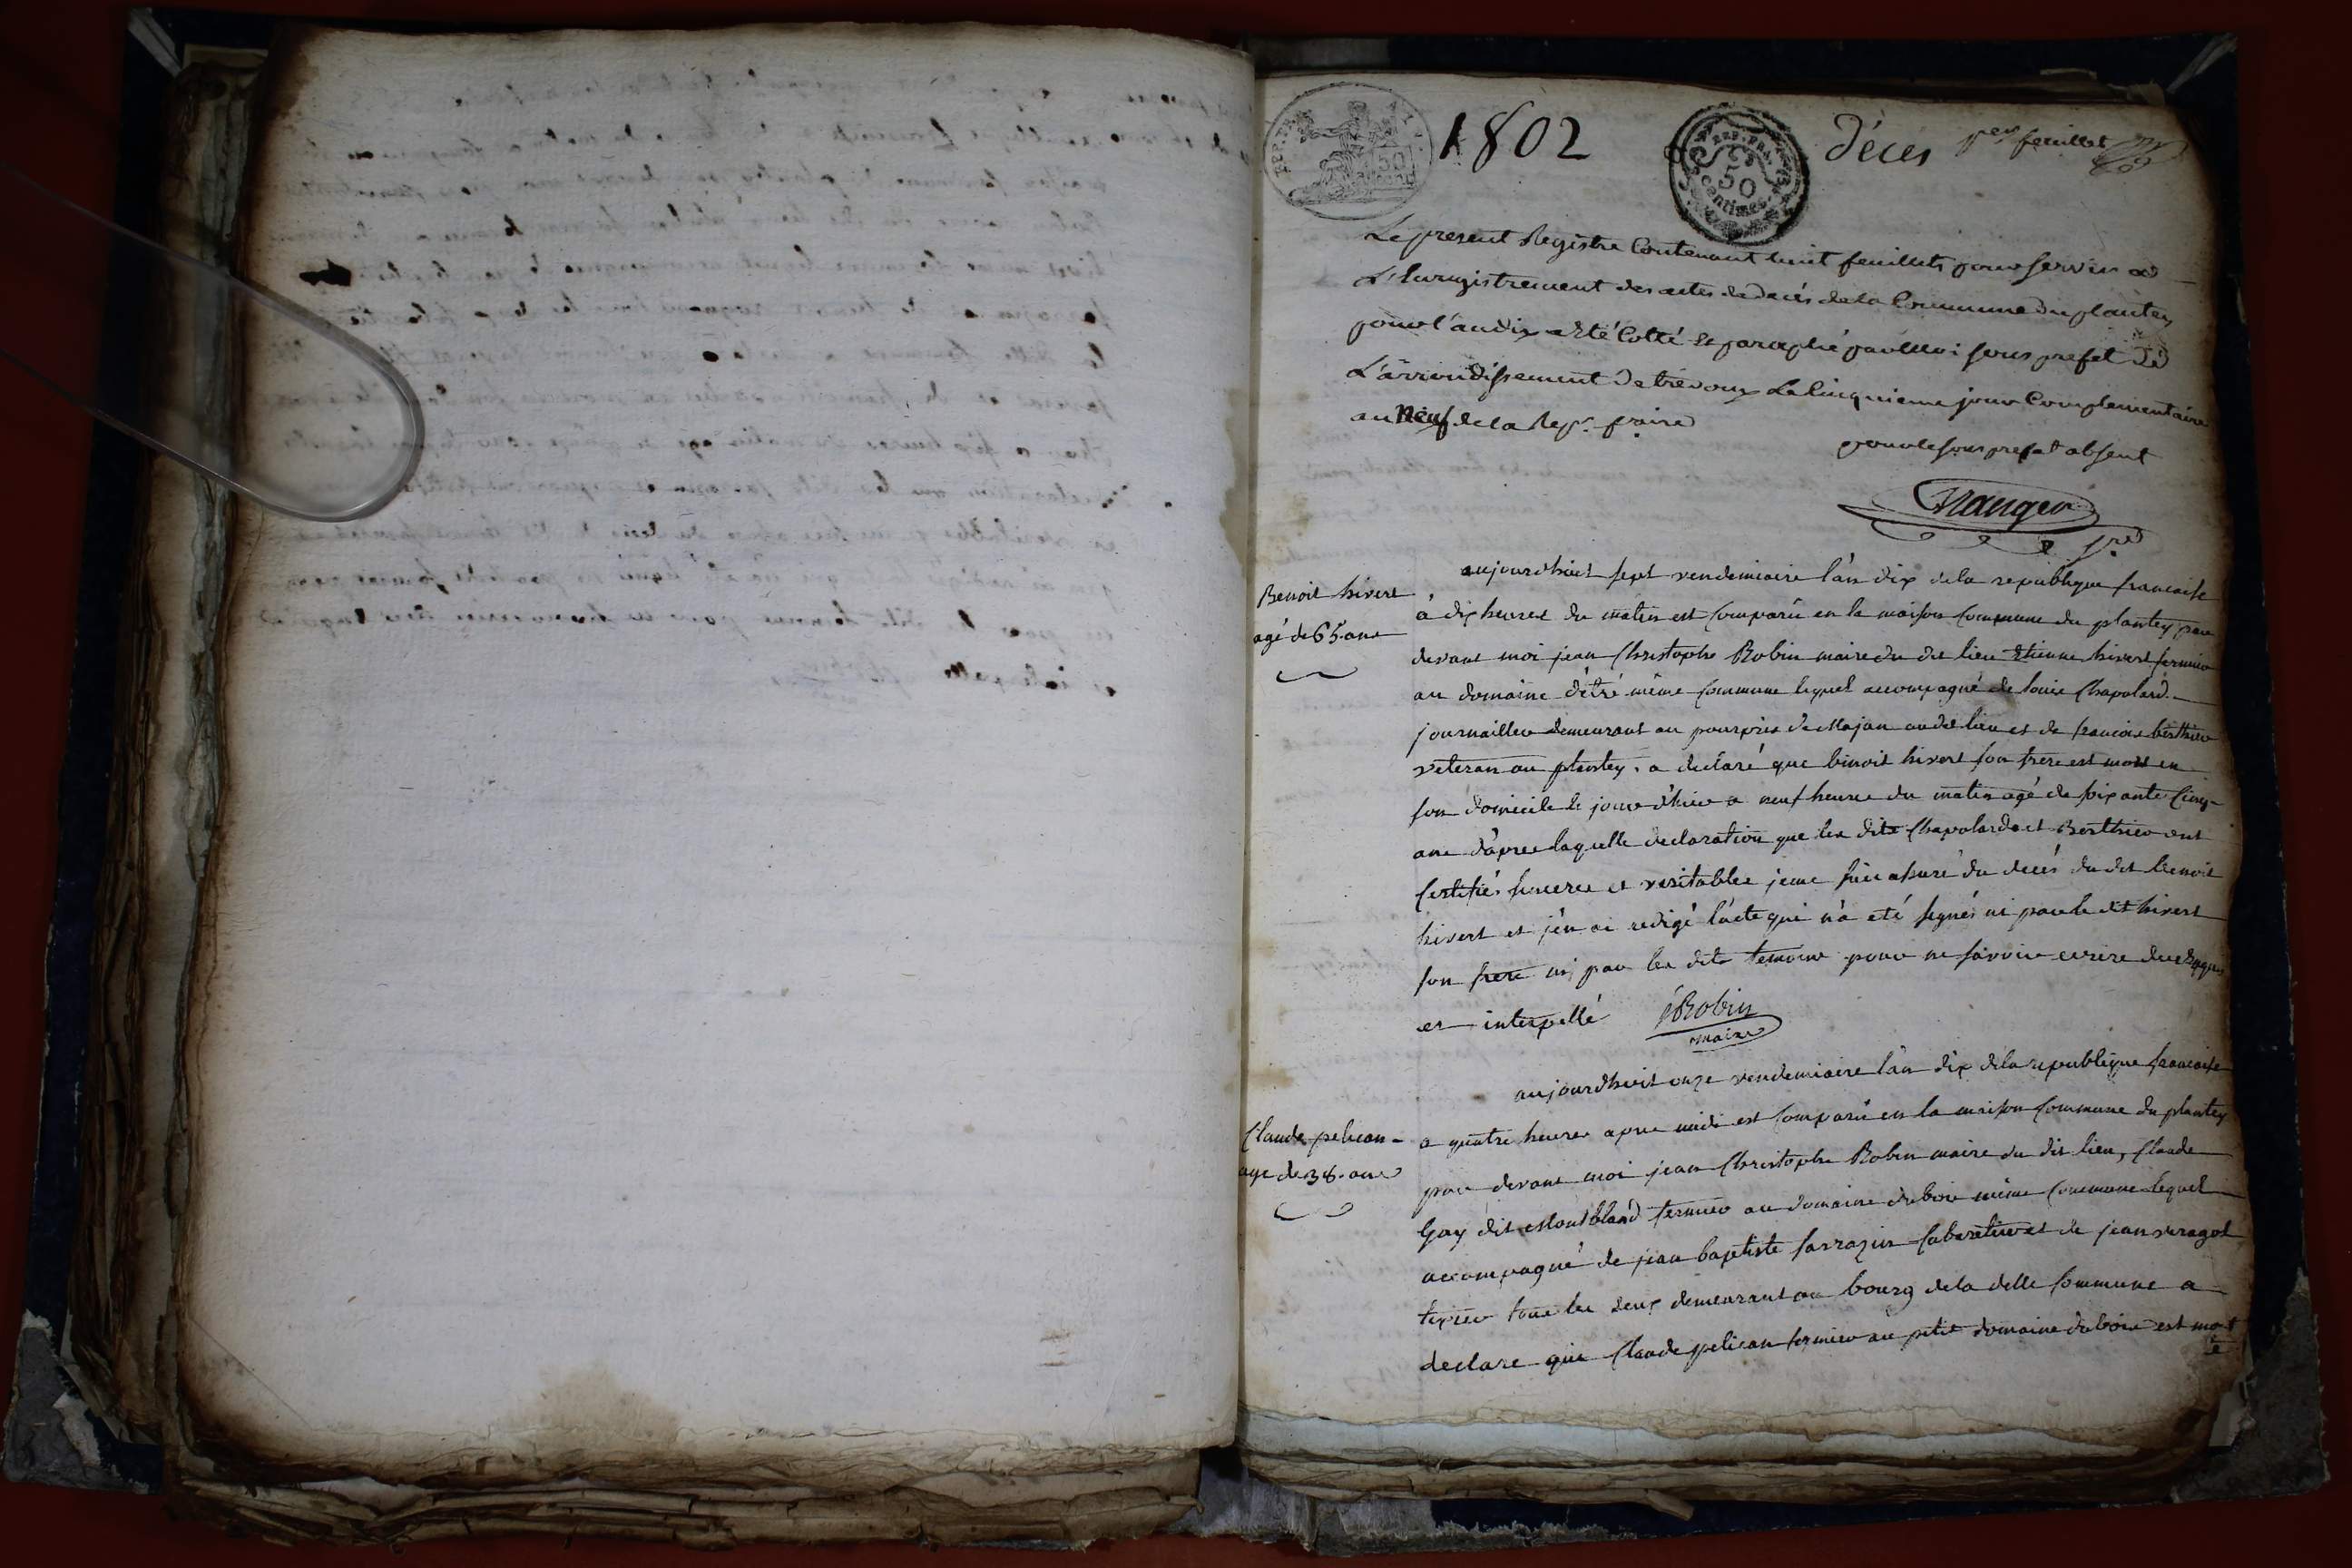 1802
REP. FRA.
50
centimes
décès
1er feuillet
Le present Registre Contenant huit feuillets pour servir a
L'Enregistrement des actes de decés de la Commune du plantey
pour l'an dix a Eté Cotté et paraphé par moi sous prefet de
L'arrondissement de trevoux Le Cinquieme jour Complementaire
an neuf de la Rep.e fraise
pour le sous prefet absent
Benoit hivert
agé de 65. ans
aujourdhuit sept vendemiaire l'an dix de la republique francaise
à dix heures du matin est Comparu en la maison Commune du plantey par
devant moi jean Christophe Robin maire du dit lieu Etienne hivert fermier
au domaine d'êtré même Commune lequel accompagné de louis Chapolard
journaillier demeurant au pourpris de Majan au dit lieu et de francois berthier
veteran au plantey. a declaré que binoit hivert son frere est mort en
son domicile le jour d'hier a neuf heures du matin agé de soixante Cinq
ans d'apres laquelle declaration que les dits Chapolard et Berthier ont
Certifiés sincere et veritable je me suis assuré du decés du dit benoit
hivert et j'en ai redigé l'acte qui n'a eté signés ni par le dit hivert
son frere ni par les dits temoins pour ne savoir ecrire de ce enquis
et interpellé
Robin
maire
Claude pelican
age de 38. ans
aujourdhuit onze vendemiaire l'an dix de la republique francaise
a quatre heures apres midi est Comparu en la maison Commune du plantey
par devant moi jean Christophe Robin maire du dit lieu, Claude
Gay dit Montbland fermier au domaine du bois même Commune lequel
accompagné de jean baptiste sarrazin Cabaretier et de jean
tixier tous les deux demeurant au bourg de la dette Commune a
declare que Claude pelican fermier au petit domaine du bois est mort